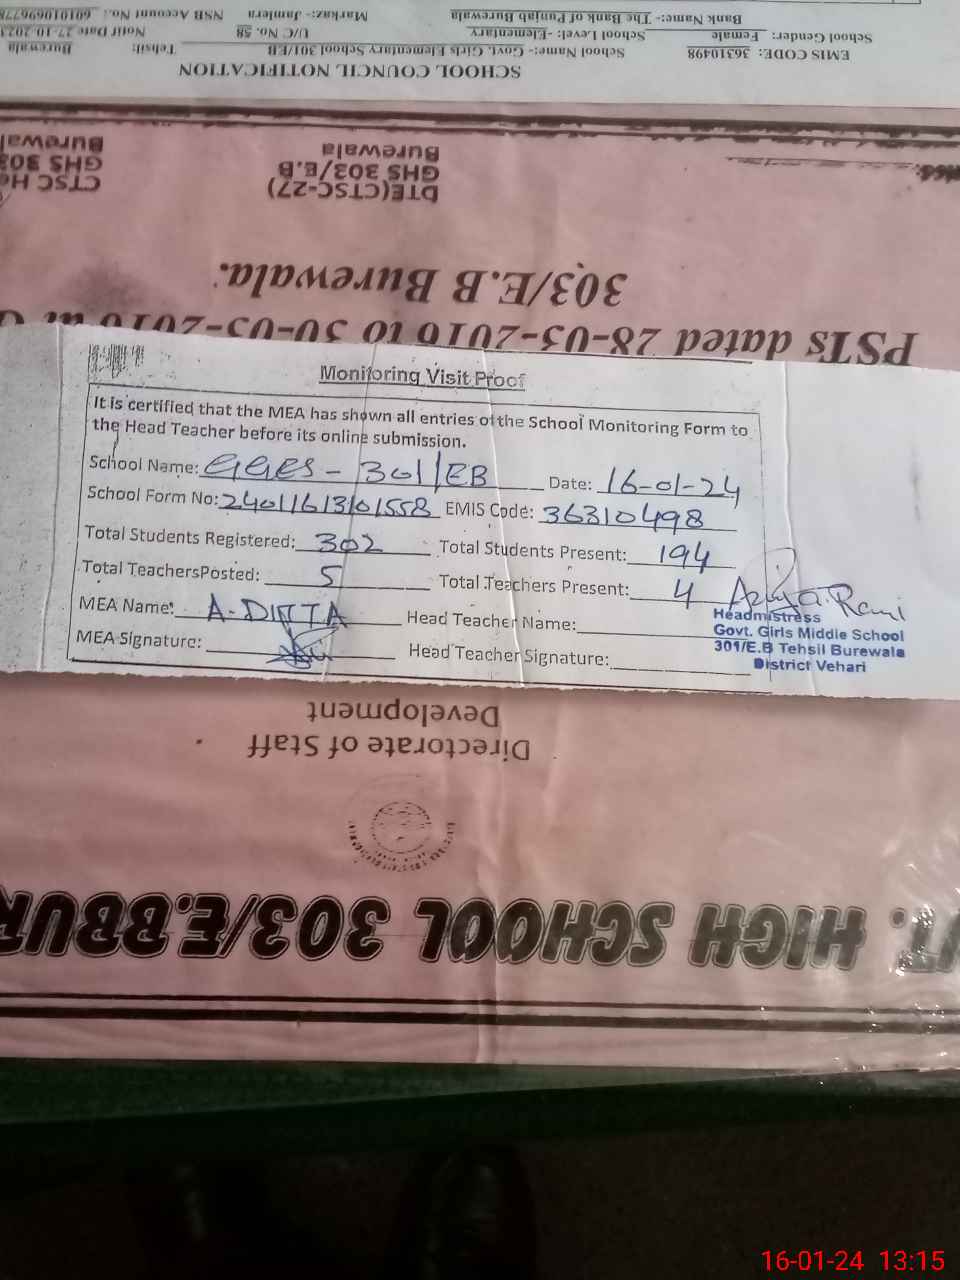 SCHOOL COUNCIL NOTIFICATION
EMIS CODE: 36310498 School Name:- Govt. Girls Elementary School 301/EB Tehsil: Burewala
School Gender: Female School Level: -Elementary U/C No. 58 Notif Date 27-10-202
Bank Name:- The Bank of Punjab Burewala Markaz:- Jamlera NSB Account No.:
DTE(CTSC-27)
GHS 303/E.B
Burewala
CTSC He
GHS 303
Burewala
PSTs dated 28-03-2016 to 30-03-2016 at G
303/E.B Burewala.
Monitoring Visit Proof
It is certified that the MEA has shown all entries of the School Monitoring Form to
the Head Teacher before its online submission.
School Name: GGES - 301/EB Date: 16-01-24
School Form No: 24011613101558 EMIS Code: 36310498
Total Students Registered: 302 Total Students Present: 194
Total TeachersPosted: 5 Total Teachers Present: 4
MEA Name: A-DITTA Head Teacher Name:
MEA Signature: Head Teacher Signature:
Headmistress
Govt. Girls Middle School
301/E.B Tehsil Burewala
District Vehari
Directorate of Staff
Development
T. HIGH SCHOOL 303/E.BBUR
16-01-24 13:15